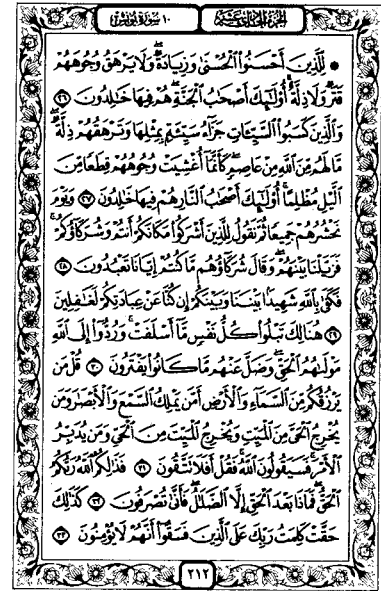 الجزء الحادي عشر
١٠ سورة يونس
۞ لِّلَّذِينَ أَحْسَنُوا۟ ٱلْحُسْنَىٰ وَزِيَادَةٌ ۖ وَلَا يَرْهَقُ وُجُوهَهُمْ
قَتَرٌ وَلَا ذِلَّةٌ ۚ أُو۟لَـٰٓئِكَ أَصْحَـٰبُ ٱلْجَنَّةِ ۖ هُمْ فِيهَا خَـٰلِدُونَ ٢٦
وَٱلَّذِينَ كَسَبُوا۟ ٱلسَّيِّـَٔاتِ جَزَآءُ سَيِّئَةٍۭ بِمِثْلِهَا وَتَرْهَقُهُمْ ذِلَّةٌ ۖ
مَّا لَهُم مِّنَ ٱللَّهِ مِنْ عَاصِمٍ ۖ كَأَنَّمَآ أُغْشِيَتْ وُجُوهُهُمْ قِطَعًا مِّنَ
ٱلَّيْلِ مُظْلِمًا ۚ أُو۟لَـٰٓئِكَ أَصْحَـٰبُ ٱلنَّارِ ۖ هُمْ فِيهَا خَـٰلِدُونَ ٢٧ وَيَوْمَ
نَحْشُرُهُمْ جَمِيعًا ثُمَّ نَقُولُ لِلَّذِينَ أَشْرَكُوا۟ مَكَانَكُمْ أَنتُمْ وَشُرَكَآؤُكُمْ ۚ
فَزَيَّلْنَا بَيْنَهُمْ ۖ وَقَالَ شُرَكَآؤُهُم مَّا كُنتُمْ إِيَّانَا تَعْبُدُونَ ٢٨
فَكَفَىٰ بِٱللَّهِ شَهِيدًۢا بَيْنَنَا وَبَيْنَكُمْ إِن كُنَّا عَنْ عِبَادَتِكُمْ لَغَـٰفِلِينَ
٢٩ هُنَالِكَ تَبْلُوا۟ كُلُّ نَفْسٍ مَّآ أَسْلَفَتْ ۚ وَرُدُّوٓا۟ إِلَى ٱللَّهِ
مَوْلَىٰهُمُ ٱلْحَقِّ ۖ وَضَلَّ عَنْهُم مَّا كَانُوا۟ يَفْتَرُونَ ٣٠ قُلْ مَن
يَرْزُقُكُم مِّنَ ٱلسَّمَآءِ وَٱلْأَرْضِ أَمَّن يَمْلِكُ ٱلسَّمْعَ وَٱلْأَبْصَـٰرَ وَمَن
يُخْرِجُ ٱلْحَىَّ مِنَ ٱلْمَيِّتِ وَيُخْرِجُ ٱلْمَيِّتَ مِنَ ٱلْحَىِّ وَمَن يُدَبِّرُ
ٱلْأَمْرَ ۚ فَسَيَقُولُونَ ٱللَّهُ ۚ فَقُلْ أَفَلَا تَتَّقُونَ ٣١ فَذَٰلِكُمُ ٱللَّهُ رَبُّكُمُ
ٱلْحَقُّ ۖ فَمَاذَا بَعْدَ ٱلْحَقِّ إِلَّا ٱلضَّلَـٰلُ ۖ فَأَنَّىٰ تُصْرَفُونَ ٣٢ كَذَٰلِكَ
حَقَّتْ كَلِمَتُ رَبِّكَ عَلَى ٱلَّذِينَ فَسَقُوٓا۟ أَنَّهُمْ لَا يُؤْمِنُونَ ٣٣
٢١٢